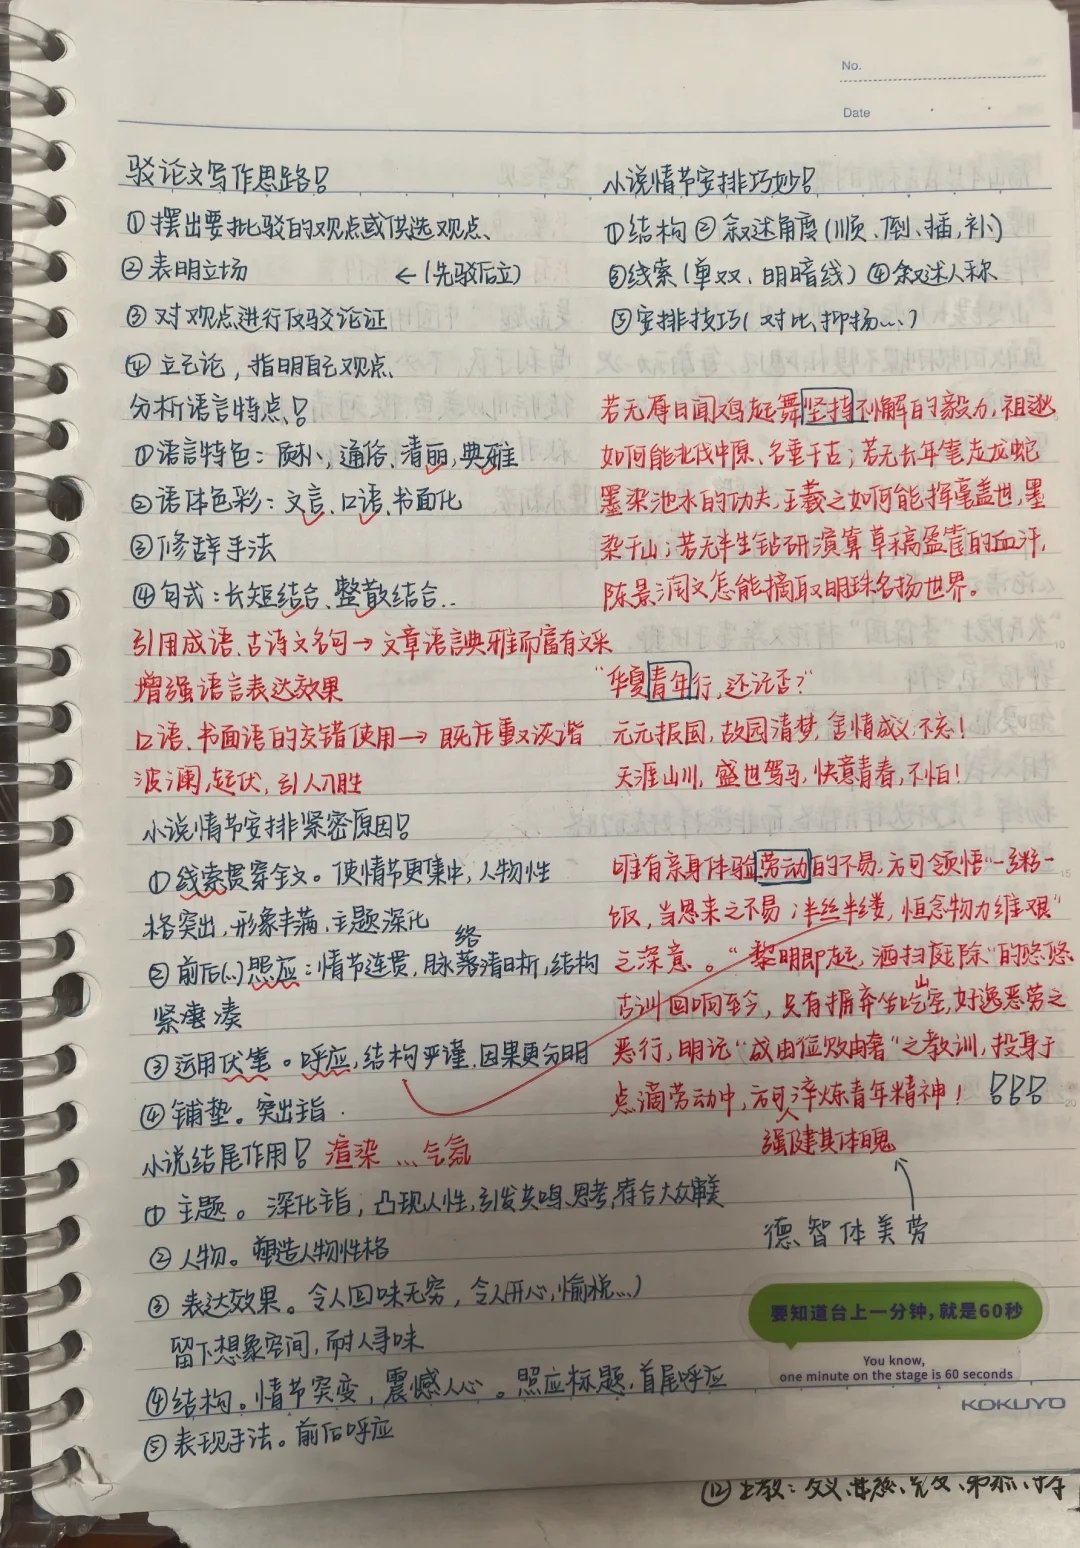 No.
Date
驳论文写作思路!
①摆出要批驳的观点或供选观点、
②表明立场 ←(先驳后立)
③对观点进行反驳论证
④立己论，指明自己观点、
分析语言特点!
①语言特色：质朴，通俗、清丽，典雅
②语体色彩：文言、口语、书面化
③修辞手法
④句式：长短结合、整散结合..
引用成语、古诗文名句→文章语言典雅而富有文采
增强语言表达效果
口语、书面语的交错使用→既庄重又诙谐
波澜，起伏，引人入胜
小说情节安排紧密原因!
①线索贯穿全文。使情节更集中，人物性
格突出，形象丰满、主题深化
络
②前后(、)照应：情节连贯，脉落清晰，结构
紧凑
③运用伏笔。呼应，结构严谨，因果更分明
④铺垫。突出主旨.
小说结尾作用! 渲染…气氛
①主题。深化主旨，凸现人性，引发共鸣、思考，符合大众审美
②人物。塑造人物性格
③表达效果。令人回味无穷，令人(开心，愉悦…)
留下想象空间，耐人寻味
④结构。情节突变，震憾人心。照应标题，首尾呼应
⑤表现手法。前后呼应
小说情节安排巧妙!
①结构②叙述角度(顺、倒、插，补)
③线索(单双、明暗线)④叙述人称
⑤安排技巧(对比，抑扬…)
若无辱日闻鸡起舞坚持不懈的毅力，祖逖
如何能北伐中原、名垂千古；若无长年笔走龙蛇
墨染池水的功夫，王羲之如何能挥毫盖世，墨
染千山；若无半生钻研演算草稿盈筐的血汗，
陈景润又怎能摘取明珠名扬世界。
"华夏青年行，还记否?"
元元报国，故园清梦，舍情成义，不忘!
天涯山川，盛世驾马，快意青春，不怕!
唯有亲身体验劳动的不易，方可领悟"一粥一
饭，当思来之不易；半丝半缕，恒念物力维艰"
之深意。"黎明即起，洒扫庭除"的悠悠
古训回响至今，只有摒弃坐吃山空，好逸恶劳之
恶行，明记"成由俭败由奢"之教训，投身于
点滴劳动中，方可淬炼青年精神! !!!
强健其体魄
德智体美劳
要知道台上一分钟，就是60秒
You know,
one minute on the stage is 60 seconds
KOKUYO